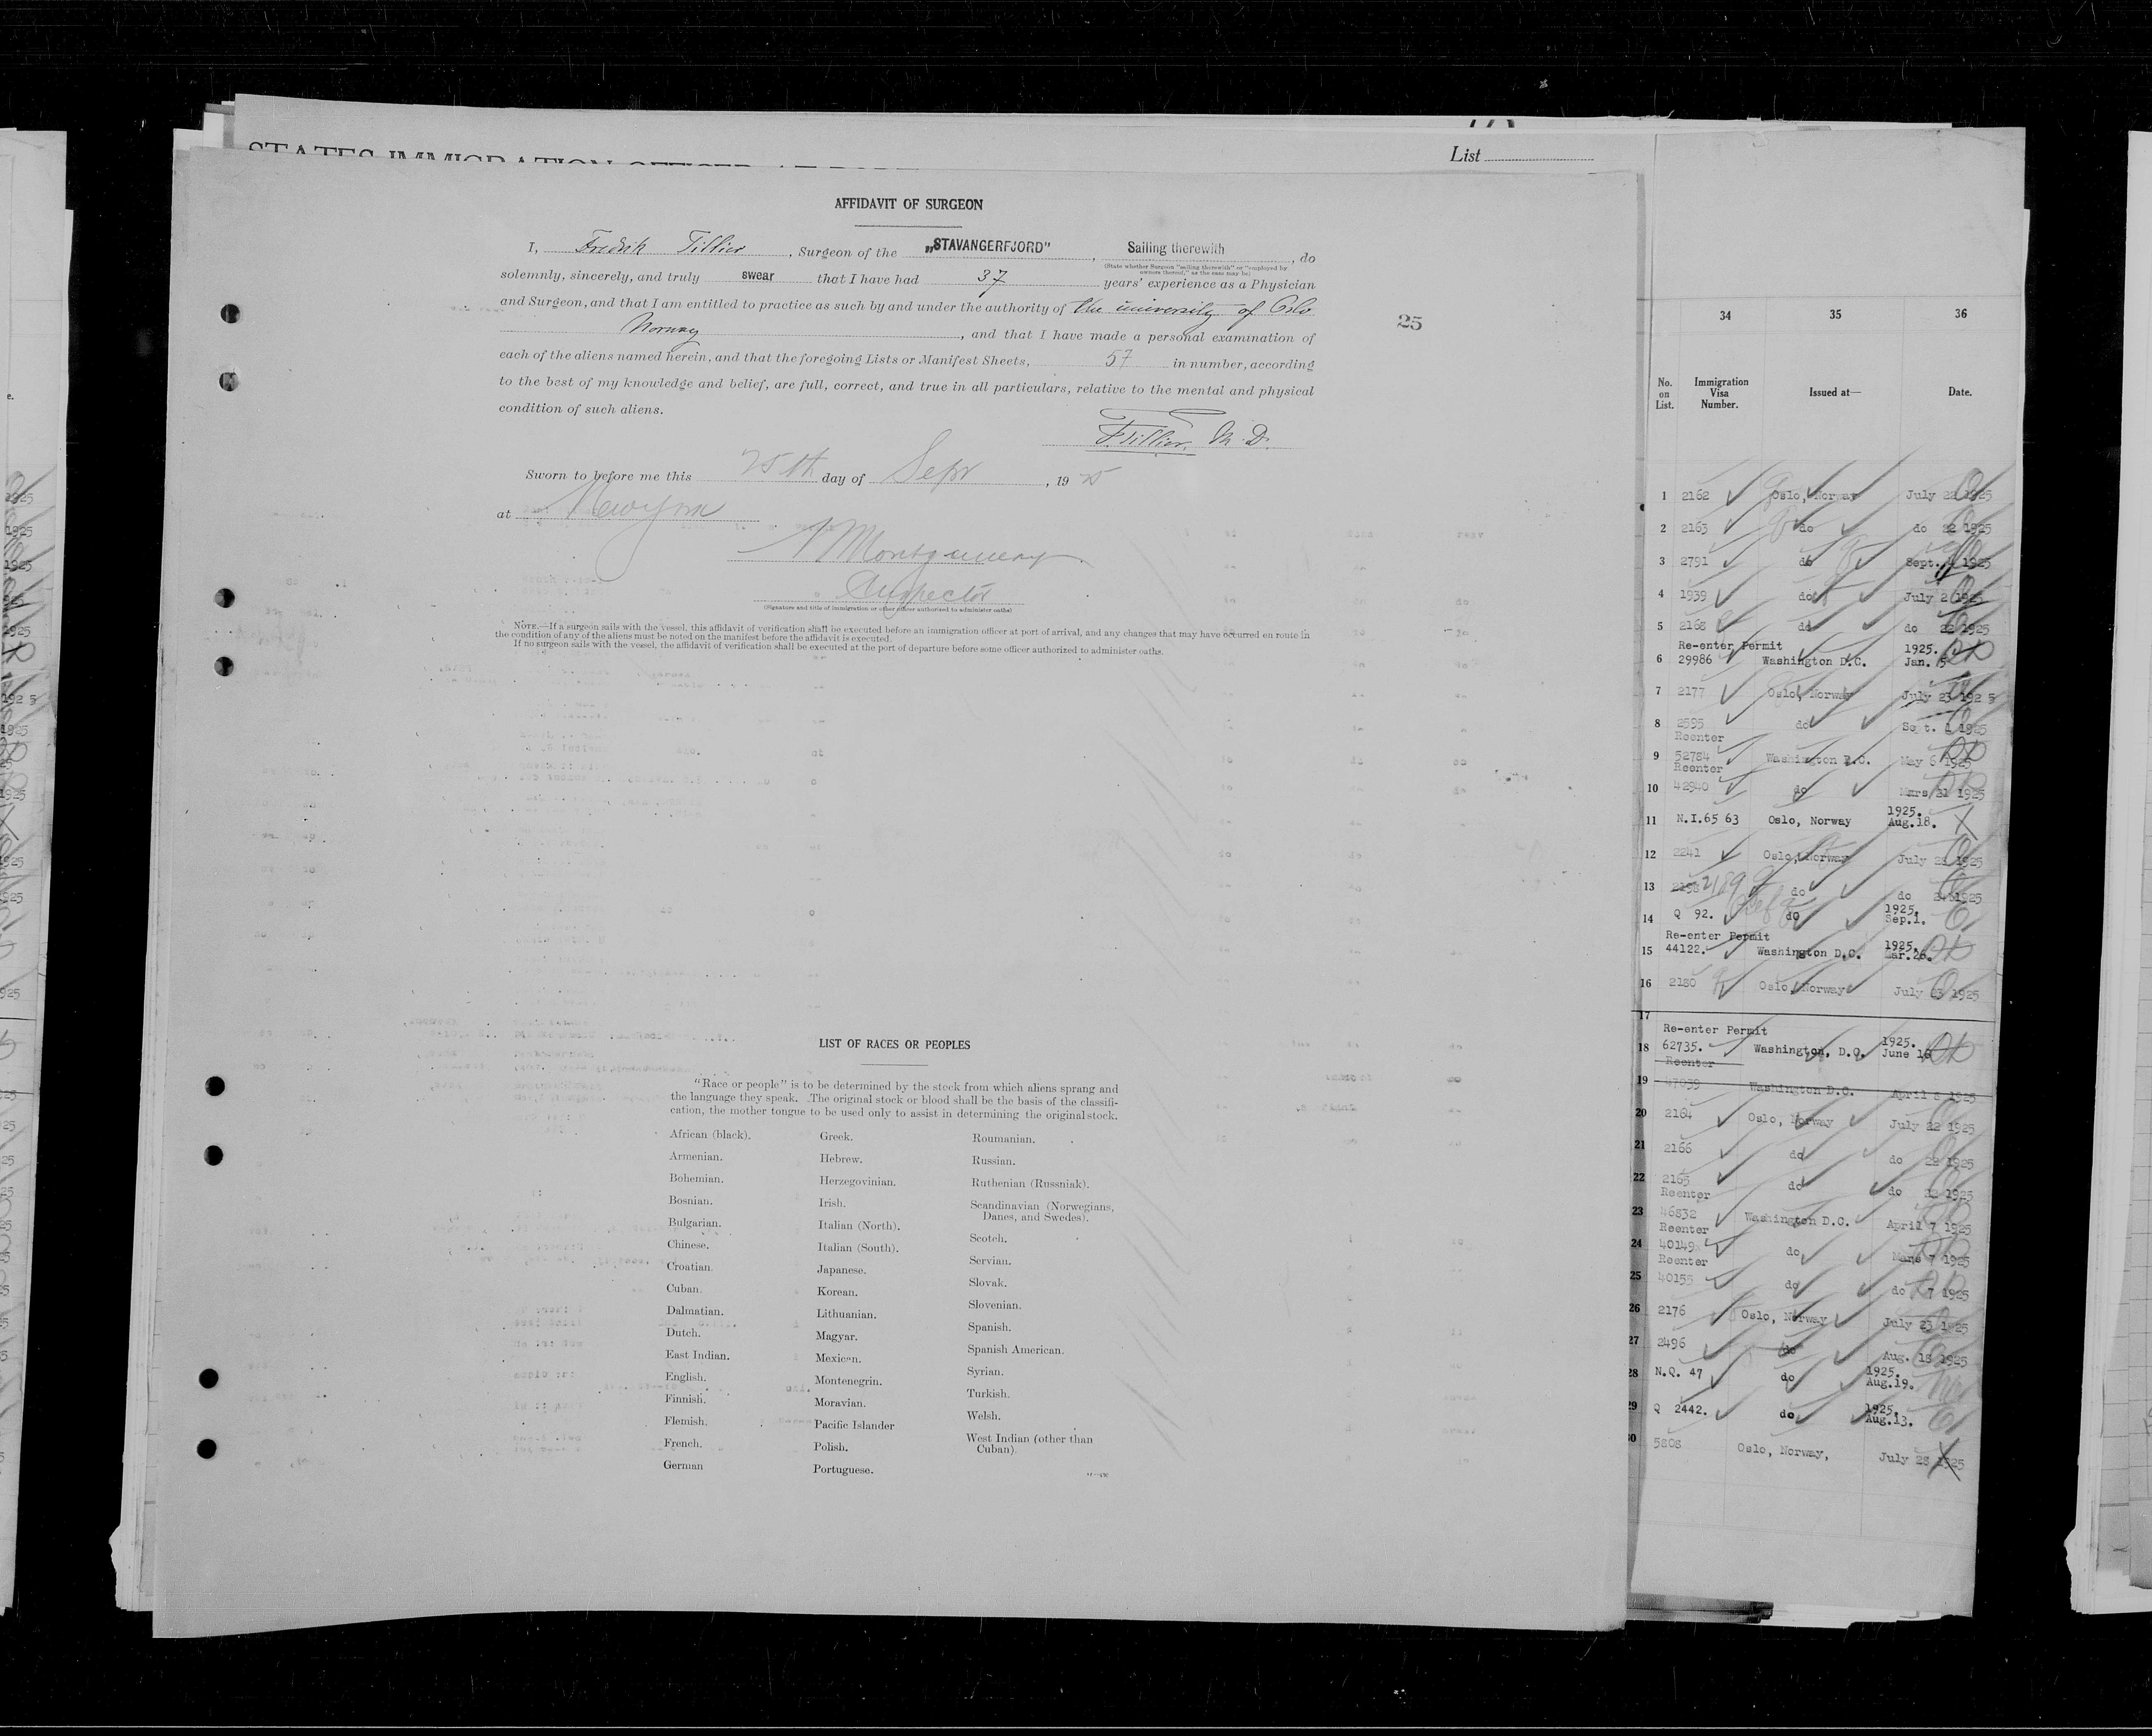 List
AFFIDAVIT OF SURGEON
I, Fredrik Tillier, Surgeon of the „STAVANGERFJORD", Sailing therewith, do
(State whether Surgeon "sailing therewith" or "employed by owners thereof," as the case may be)
solemnly, sincerely, and truly swear that I have had 37 years' experience as a Physician
and Surgeon, and that I am entitled to practice as such by and under the authority of the university of Oslo
Norway, and that I have made a personal examination of
each of the aliens named herein, and that the foregoing Lists or Manifest Sheets, 57 in number, according
to the best of my knowledge and belief, are full, correct, and true in all particulars, relative to the mental and physical
condition of such aliens.
F Tillier, M. D.
Sworn to before me this 25th day of Sept, 1925
at New York
Montgomery
Inspector
(Signature and title of immigration or other officer authorized to administer oaths)
NOTE.—If a surgeon sails with the vessel, this affidavit of verification shall be executed before an immigration officer at port of arrival, and any changes that may have occurred en route in
the condition of any of the aliens must be noted on the manifest before the affidavit is executed.
If no surgeon sails with the vessel, the affidavit of verification shall be executed at the port of departure before some officer authorized to administer oaths.
25
LIST OF RACES OR PEOPLES
"Race or people" is to be determined by the stock from which aliens sprang and
the language they speak. The original stock or blood shall be the basis of the classifi-
cation, the mother tongue to be used only to assist in determining the original stock.
African (black).
Armenian.
Bohemian.
Bosnian.
Bulgarian.
Chinese.
Croatian.
Cuban.
Dalmatian.
Dutch.
East Indian.
English.
Finnish.
Flemish.
French.
German
Greek.
Hebrew.
Herzegovinian.
Irish.
Italian (North).
Italian (South).
Japanese.
Korean.
Lithuanian.
Magyar.
Mexican.
Montenegrin.
Moravian.
Pacific Islander
Polish.
Portuguese.
Roumanian.
Russian.
Ruthenian (Russniak).
Scandinavian (Norwegians,
Danes, and Swedes).
Scotch.
Servian.
Slovak.
Slovenian.
Spanish.
Spanish American.
Syrian.
Turkish.
Welsh.
West Indian (other than
Cuban).
34 35 36
No. on List. Immigration Visa Number. Issued at— Date.
1 2162 Oslo, Norway July 22 1925
2 2163 do do 22 1925
3 2791 do Sept. 4 1925
4 1939 do July 2 1925
5 2168 do do 22 1925
Re-enter Permit 1925.
6 29986 Washington D.C. Jan. 5
7 2177 Oslo, Norway July 23 1925
8 2595 do Sept. 1 1925
Reenter
9 52784 Washington D.C. May 6 1925
Reenter
10 42940 do Mars 21 1925
1925.
11 N.I.65 63 Oslo, Norway Aug.18.
12 2241 Oslo, Norway July 1925
13 2189 do do 24 1925
1925.
14 Q 92. do Sep.1.
Re-enter Permit 1925.
15 44122. Washington D.C. Mar.26.
16 2180 Oslo, Norway July 23 1925
17
Re-enter Permit 1925.
18 62735. Washington, D.C. June 16
Reenter
19 47039 Washington D.C. April 8 1925
20 2164 Oslo, Norway July 22 1925
21 2166 do do 22 1925
22 2165 do do 22 1925
Reenter
23 46832 Washington D.C. April 7 1925
Reenter
24 40149 do Mars 7 1925
Reenter
25 40155 do do 7 1925
26 2176 Oslo, Norway July 23 1925
27 2496 do Aug. 18 1925
1925.
28 N.Q. 47 do Aug.19.
1925.
29 Q 2442. do Aug.13.
30 5808 Oslo, Norway, July 28 1925